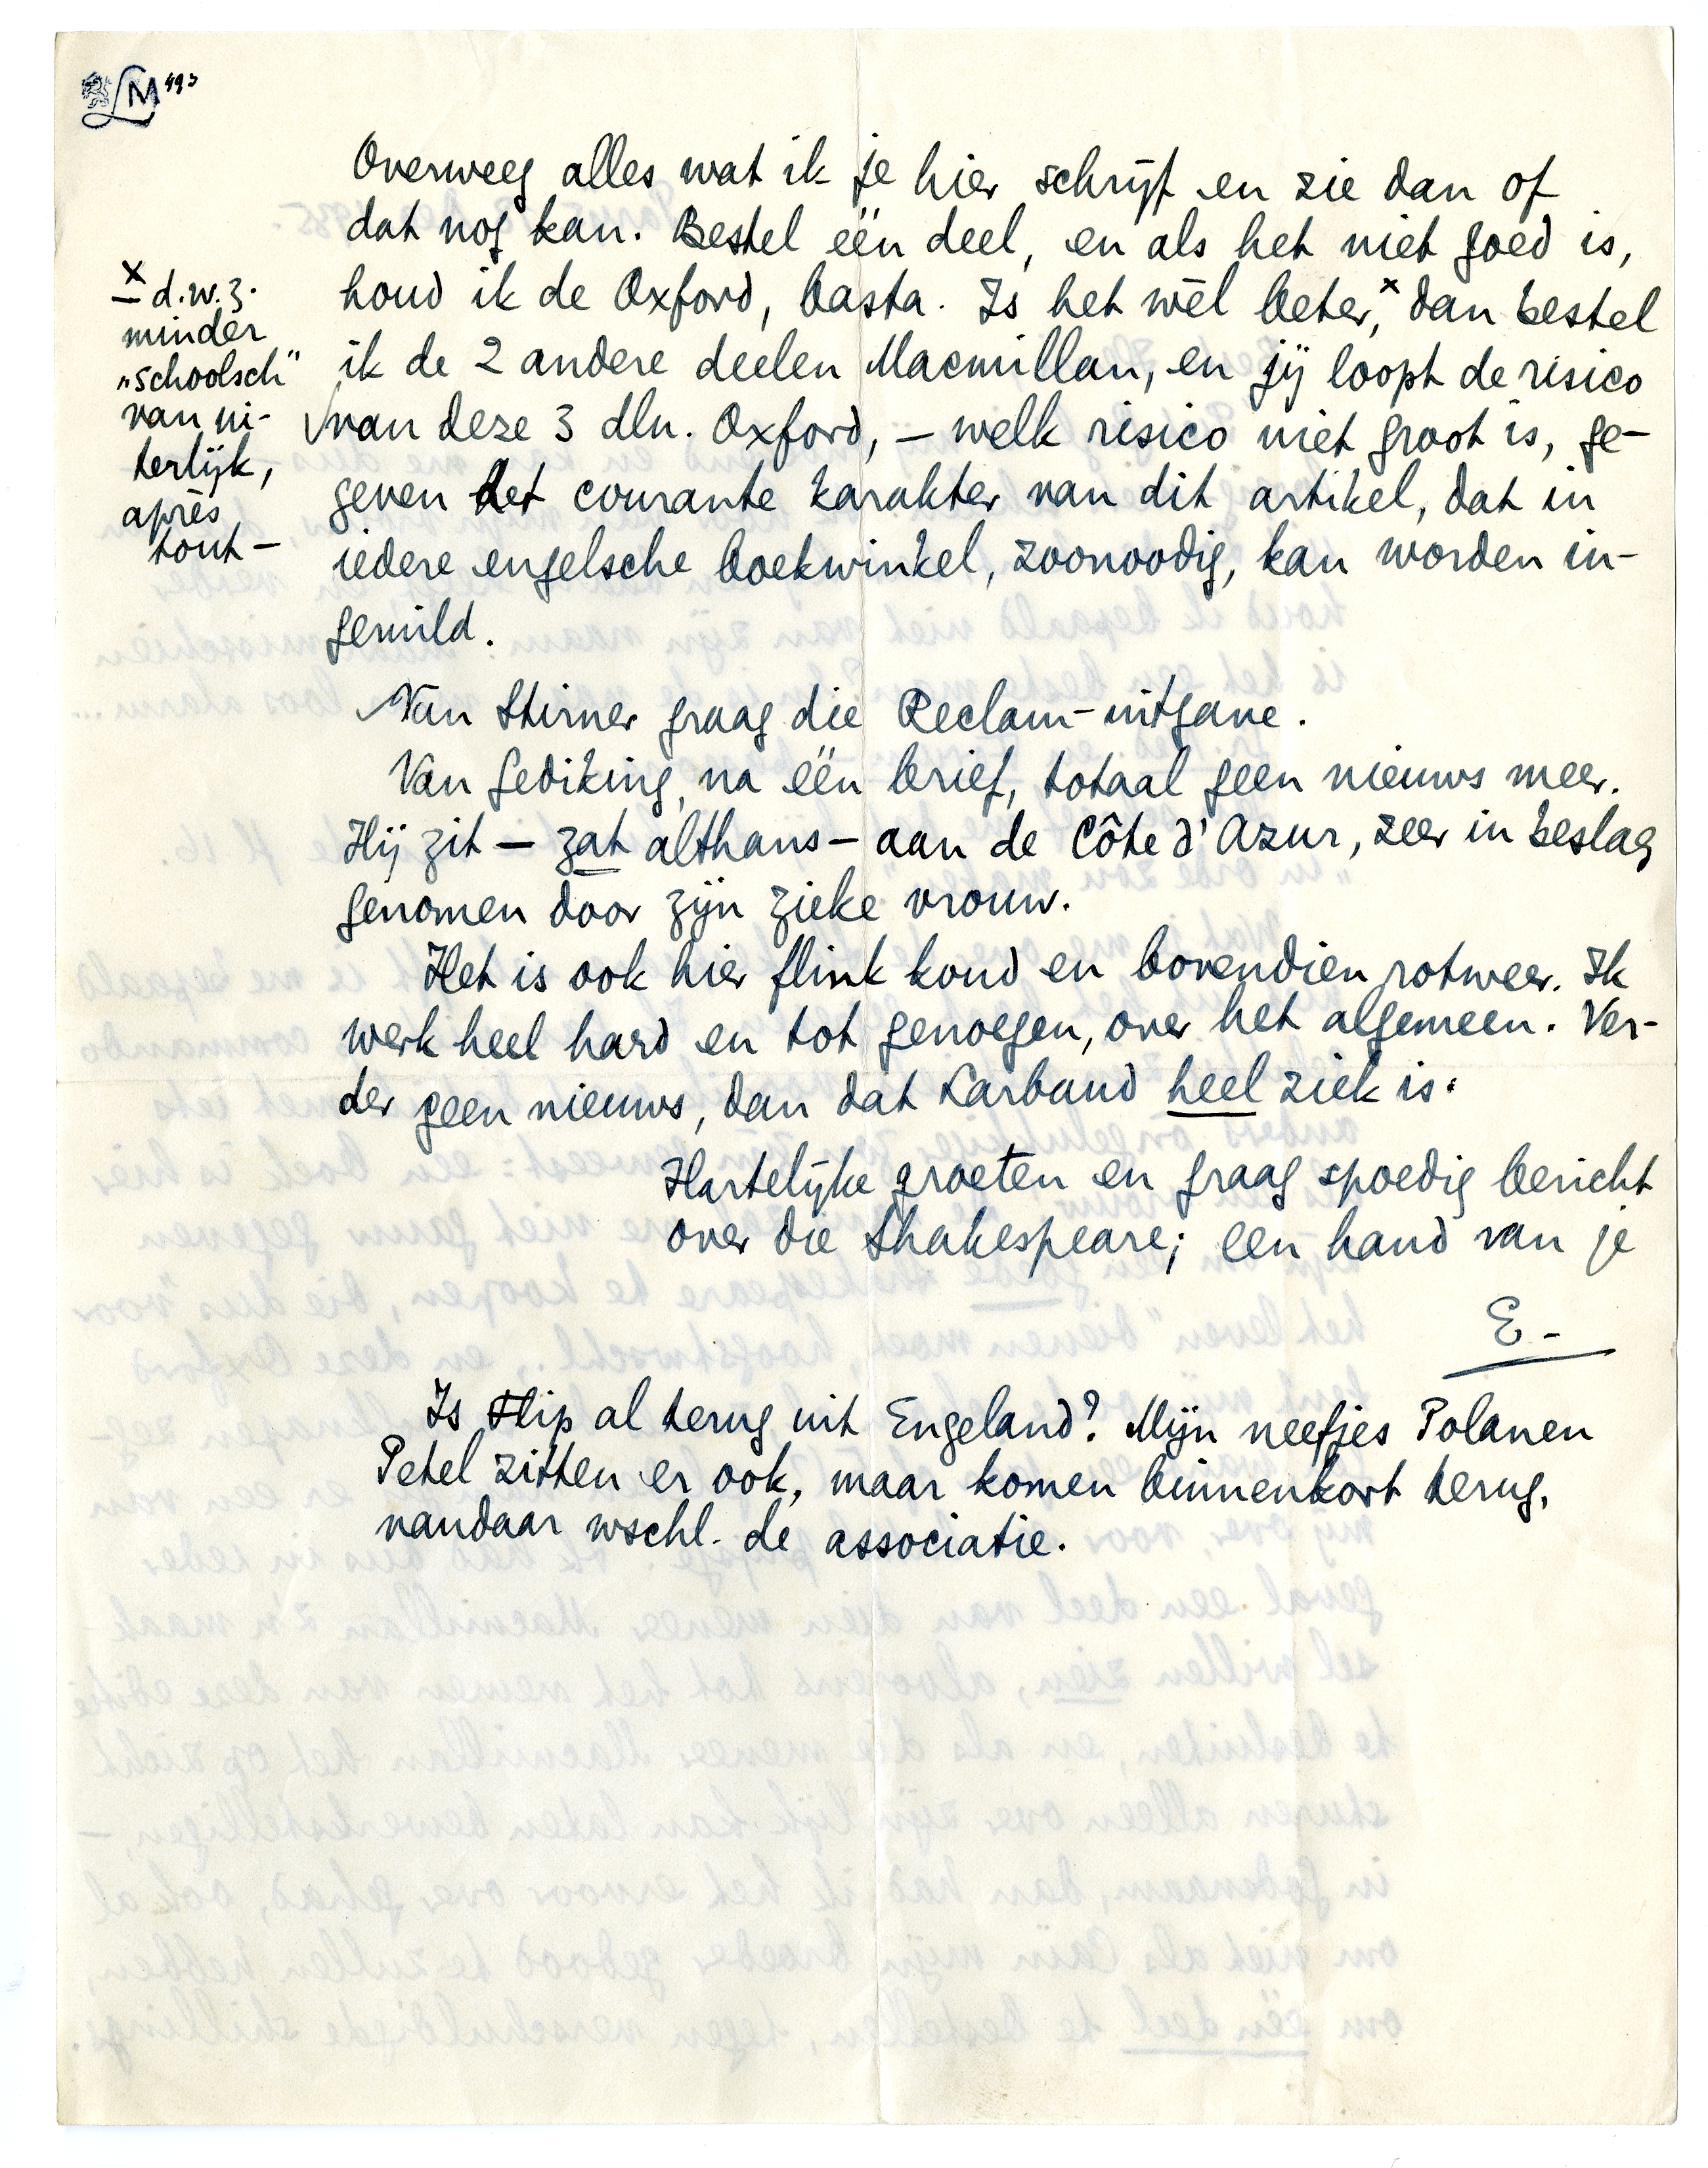 LM 493
Overweeg alles wat ik je hier schrijf en zie dan of
dat nog kan. Bestel één deel, en als het niet goed is,
houd ik de Oxford, basta. Is het wèl beter,ˣ dan bestel
ik de 2 andere deelen Macmillan, en jij loopt de risico
van deze 3 dln. Oxford, — welk risico niet groot is, ge-
geven het courante karakter van dit artikel, dat in
iedere engelsche boekwinkel, zoonoodig, kan worden in-
geruild.
x d.w.z.
minder
„schoolsch"
van ui-
terlijk,
après
tout —
Van Stirner graag die Reclam-uitgave.
Van Gediking, na één brief, totaal geen nieuws meer.
Hij zit — zat althans — aan de Côte d'Azur, zeer in beslag
genomen door zijn zieke vrouw.
Het is ook hier flink koud en bovendien rotweer. Ik
werk heel hard en tot genoegen, over het algemeen. Ver-
der geen nieuws, dan dat Larbaud heel ziek is.
Hartelijke groeten en graag spoedig bericht
over die Shakespeare; een hand van je
E -
Is Flip al terug uit Engeland? Mijn neefjes Polanen
Petel zitten er ook, maar komen binnenkort terug,
vandaar wschl. de associatie.